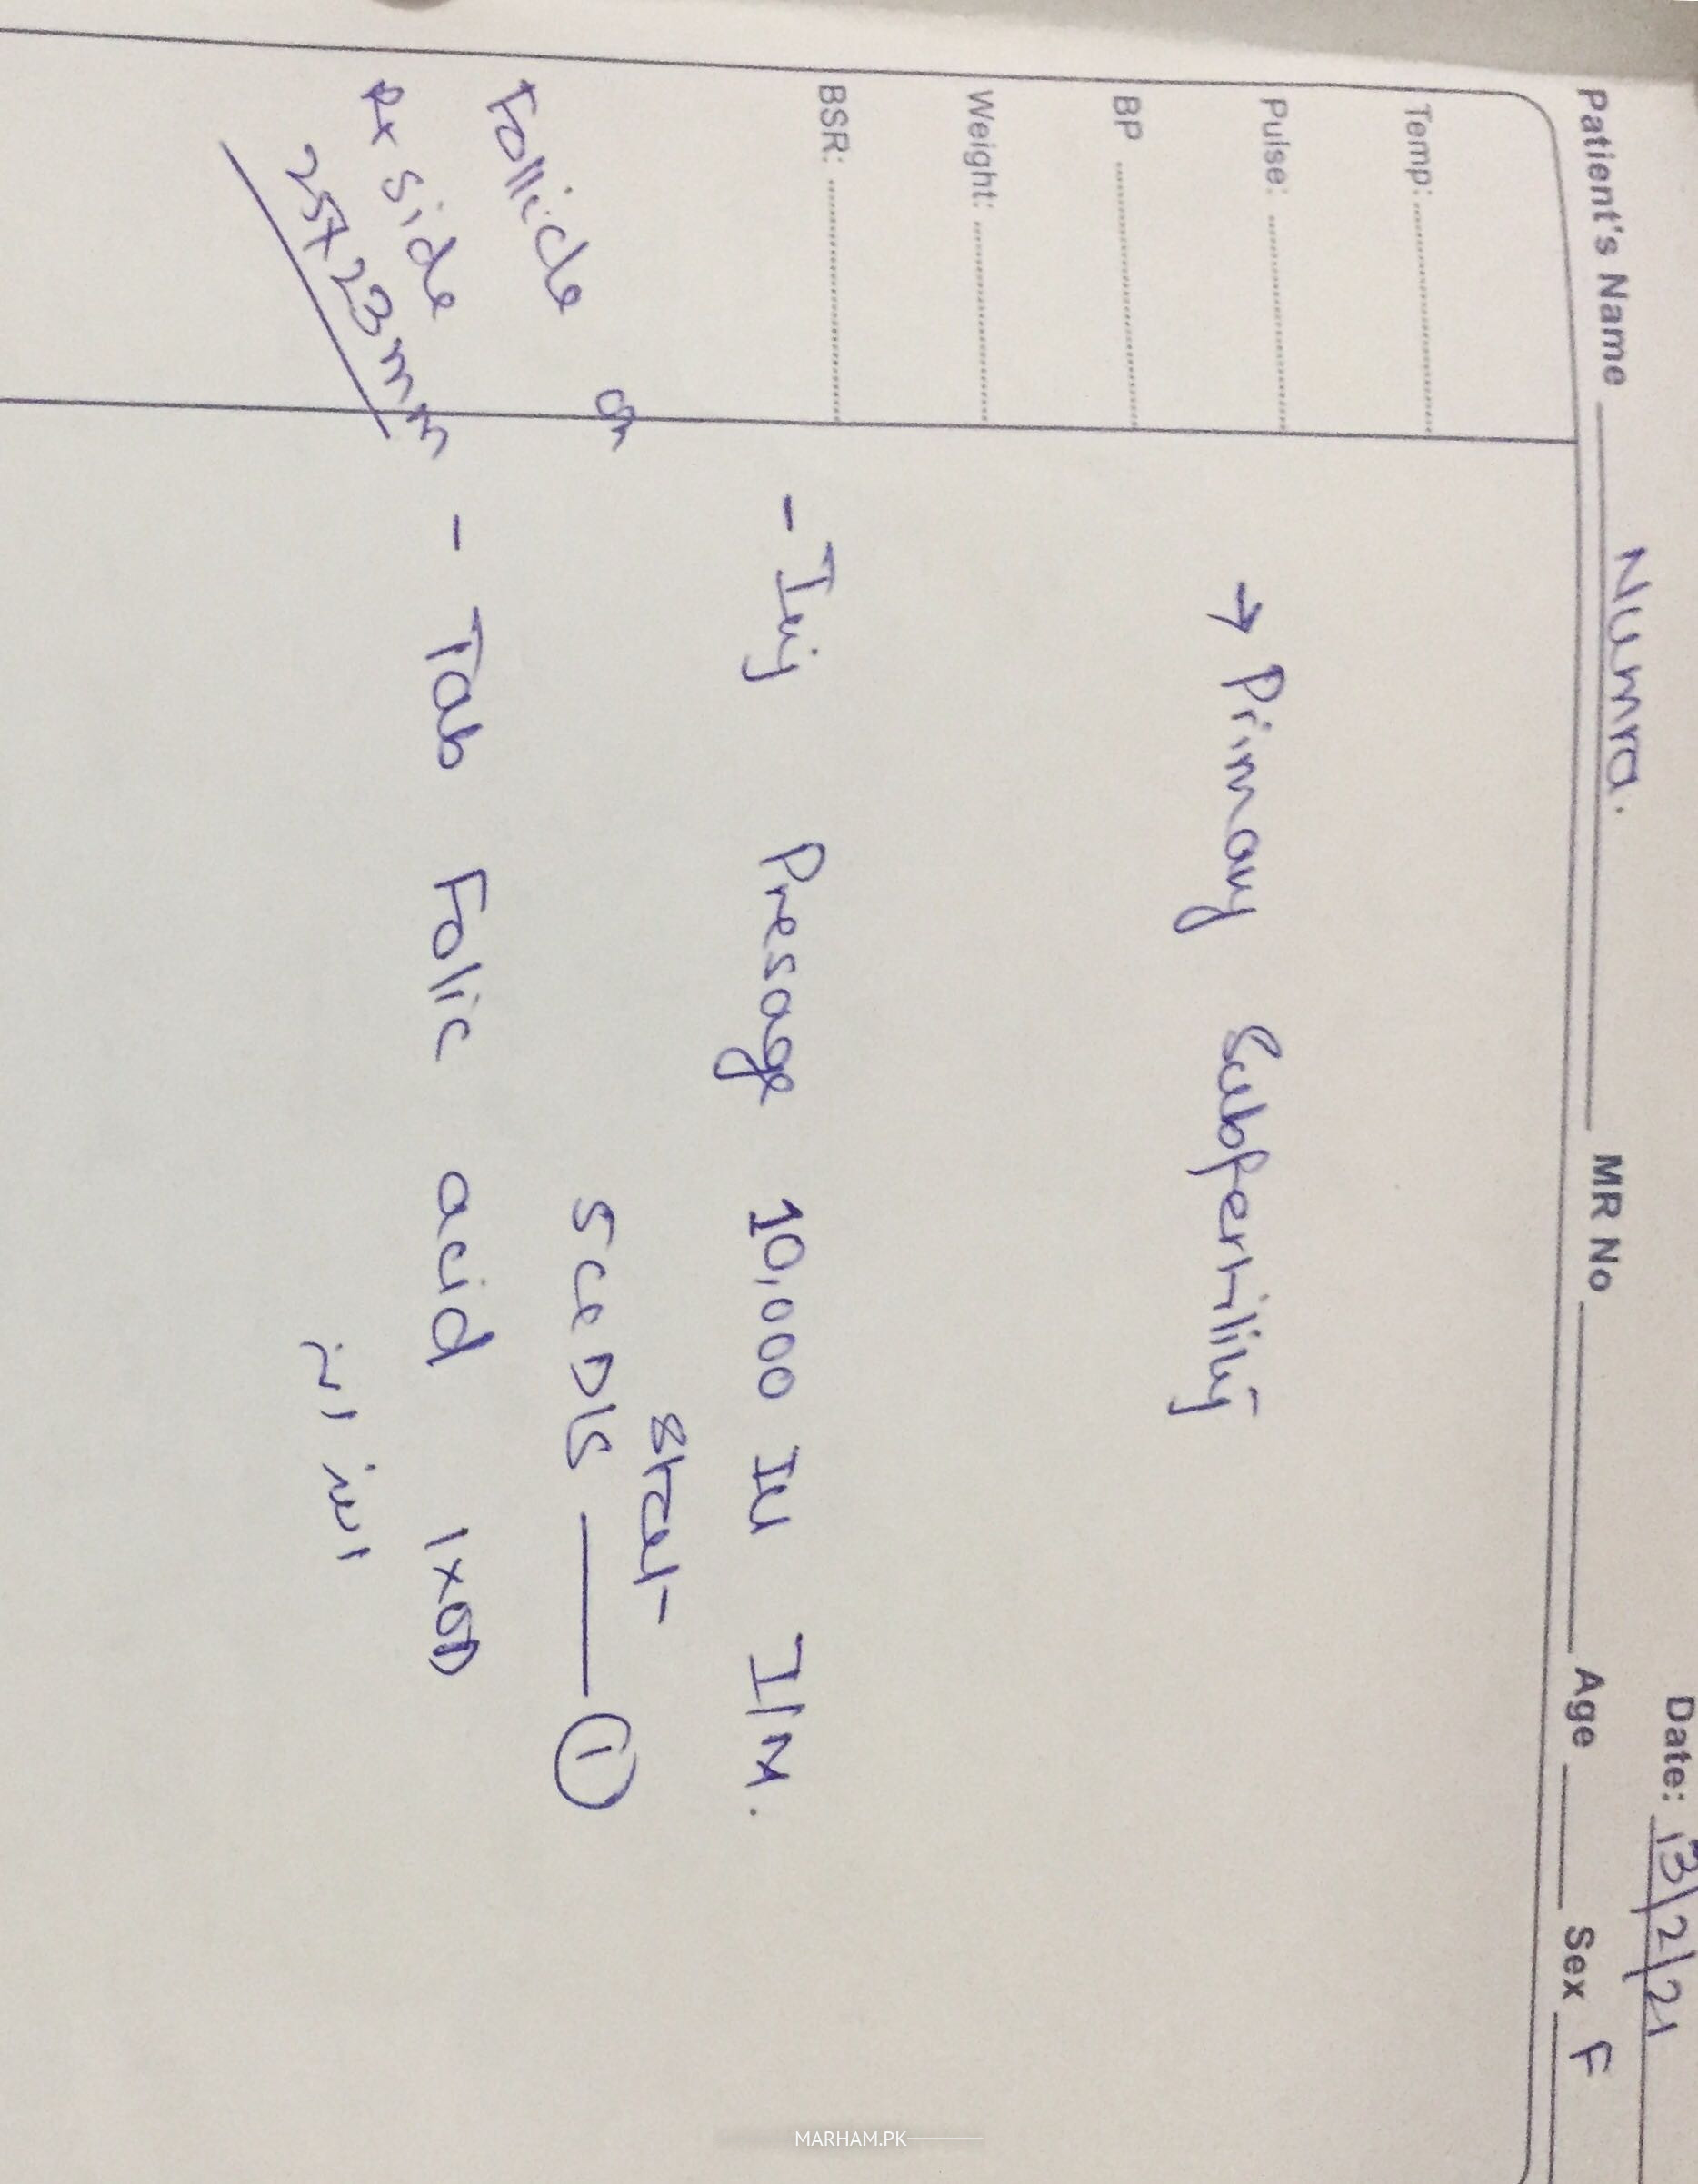 Date: 13/2/21
Patient's Name Numra. MR No Age Sex F
Temp:
Pulse:
BP
Weight:
BSR:
→ Primary Subfertility
- Inj Presage 10,000 IU I/M.
stat
5cc D/S ——— ①
Follicle on
Rx side
25x23mm
- Tab Folic acid 1xOD
MARHAM.PK